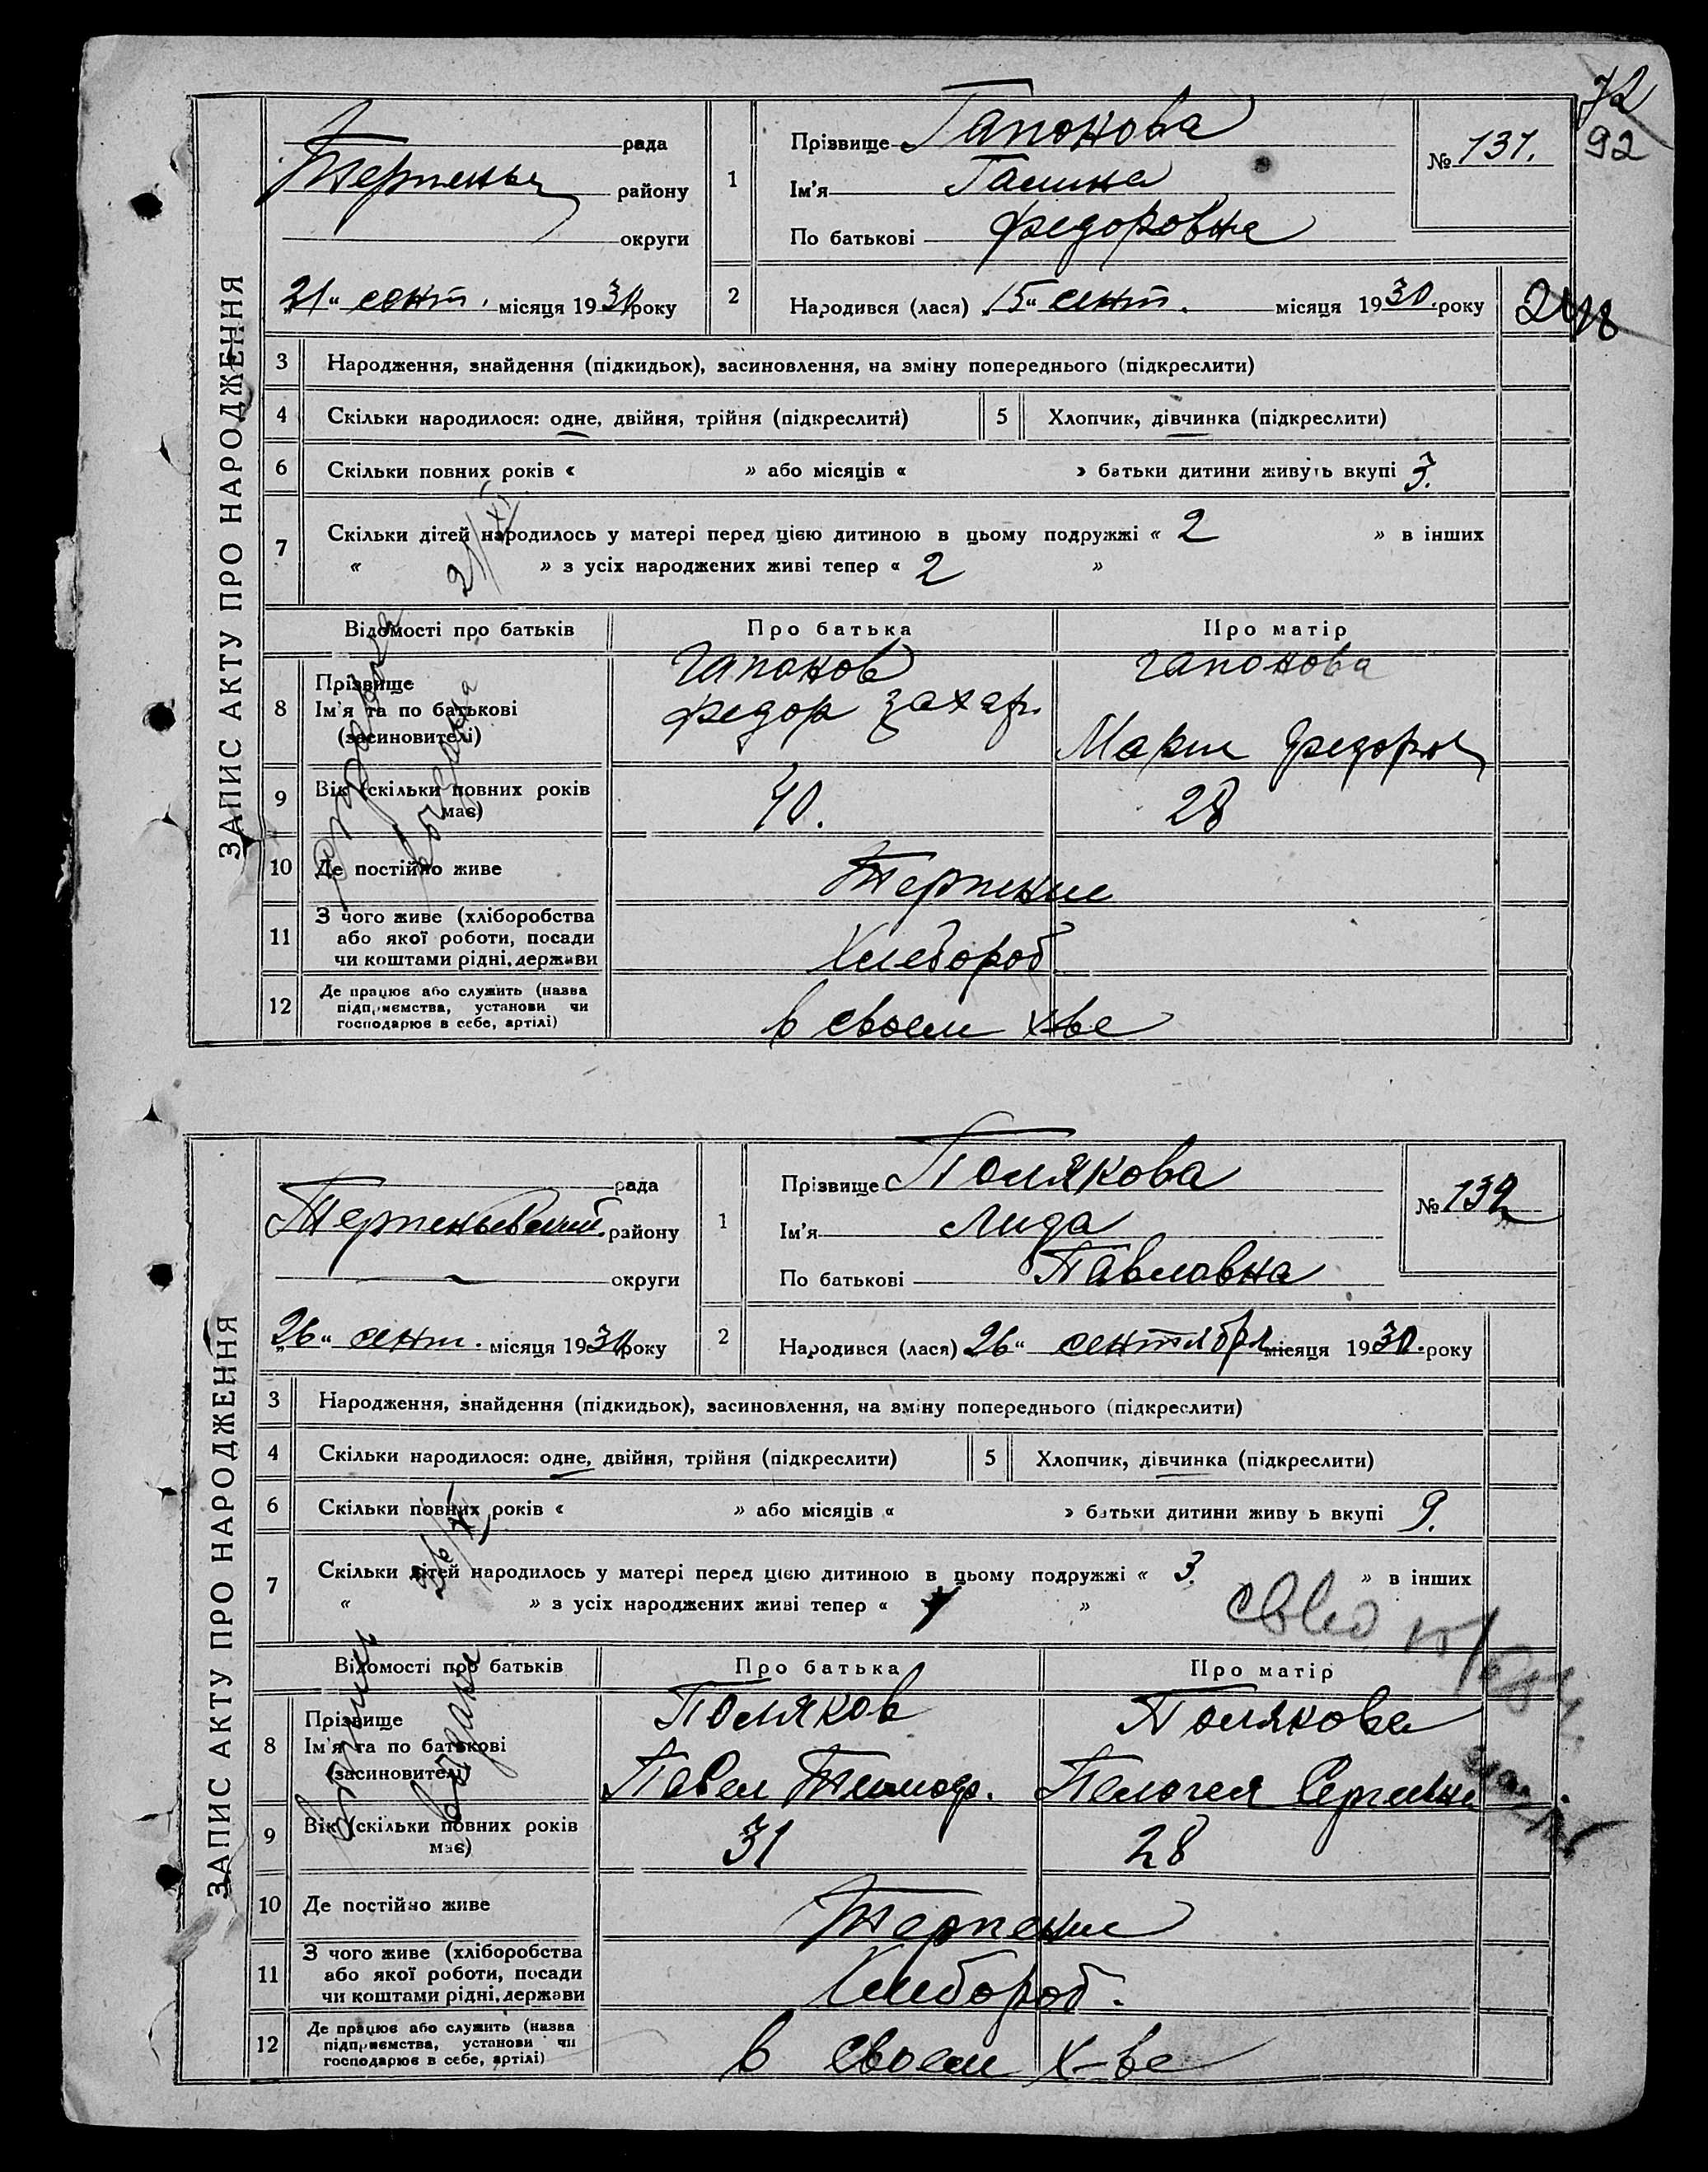 72
92
ЗАПИС АКТУ ПРО НАРОДЖЕННЯ
рада
району
округи
21" сент. місяця 1930 року
1
Прізвище Гапонова
Ім'я Галина
По батькові Федоровна
№ 131.
2
Народився (лася) 15" сент. місяця 1930 року
3 Народження, знайдення (підкидьок), засиновлення, на зміну попереднього (підкреслити)
4 Скільки народилося: одне, двійня, трійня (підкреслити)
5 Хлопчик, дівчинка (підкреслити)
6 Скільки повних років « » або місяців « » батьки дитини живуть вкупі 3.
7 Скільки дітей народилось у матері перед цією дитиною в цьому подружжі « 2 » в інших
« » з усіх народжених живі тепер « 2 »
Відомості про батьків Про батька Про матір
8 Прізвище Гапонов Гапонова
Ім'я та по батькові Федор Захар.
(засиновителі) Мария
9 Вік (скільки повних років
має) 40. 28
10 Де постійно живе Терпение
11 З чого живе (хліборобства
або якої роботи, посади
чи коштами рідні, держави Хлебороб
12 Де працює або служить (назва
підприємства, установи чи
господарює в себе, артілі) в своем х-ве
ЗАПИС АКТУ ПРО НАРОДЖЕННЯ
рада
району
округи
26" сент. місяця 1930 року
1
Прізвище Полякова
Ім'я Лида
По батькові Павловна
№ 132
2
Народився (лася) 26" сентября місяця 1930. року
3 Народження, знайдення (підкидьок), засиновлення, на зміну попереднього (підкреслити)
4 Скільки народилося: одне, двійня, трійня (підкреслити)
5 Хлопчик, дівчинка (підкреслити)
6 Скільки повних років « » або місяців « » батьки дитини живу ь вкупі 9.
7 Скільки дітей народилось у матері перед цією дитиною в цьому подружжі « 3. » в інших
« » з усіх народжених живі тепер « »
Відомості про батьків Про батька Про матір
8 Прізвище Поляков Полякова
Ім'я та по батькові
(засиновителі) Павел Тимоф. Пелогея Сергеевна
9 Вік (скільки повних років
має) 31 28
10 Де постійно живе Терпение
11 З чого живе (хліборобства
або якої роботи, посади
чи коштами рідні, держави Хлебороб.
12 Де працює або служить (назва
підприємства, установи чи
господарює в себе, артілі) в своем х-ве